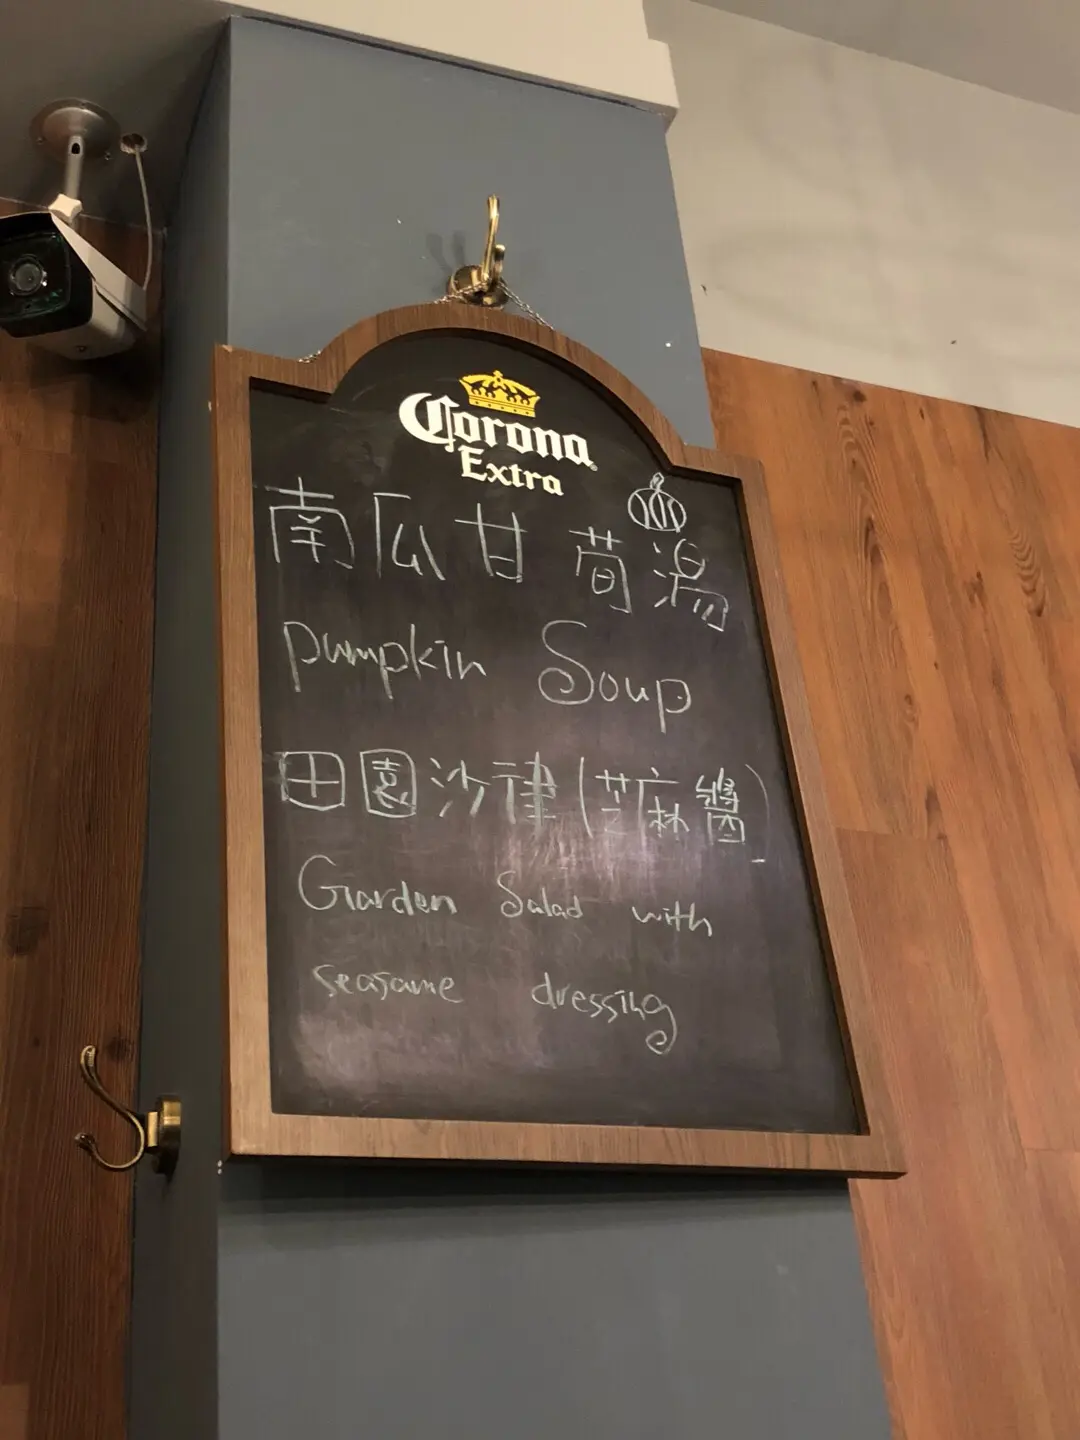 Corona
Extra
南瓜甘荀湯
pumpkin Soup
田園沙律(芝麻醬)
Garden Salad with
seasame dressing